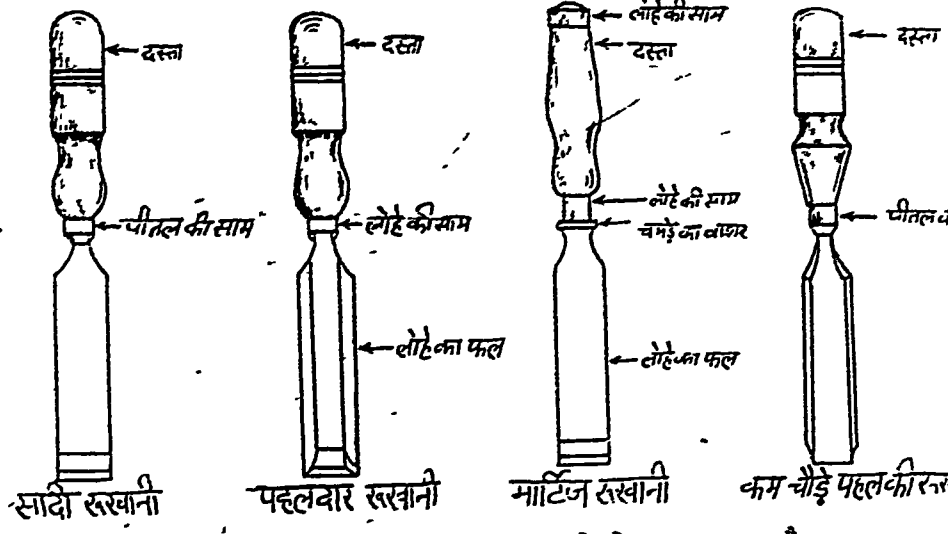 दस्ता
पीतल की साम
सादी रुखानी
दस्ता
लोहे की साम
लोहे का फल
पहलदार रुखानी
लोहे की साम
दस्ता
लोहे की साम
चमड़े का वाशर
लोहे का फल
मार्टिज रुखानी
दस्ता
पीतल
कम चौड़े पहल की